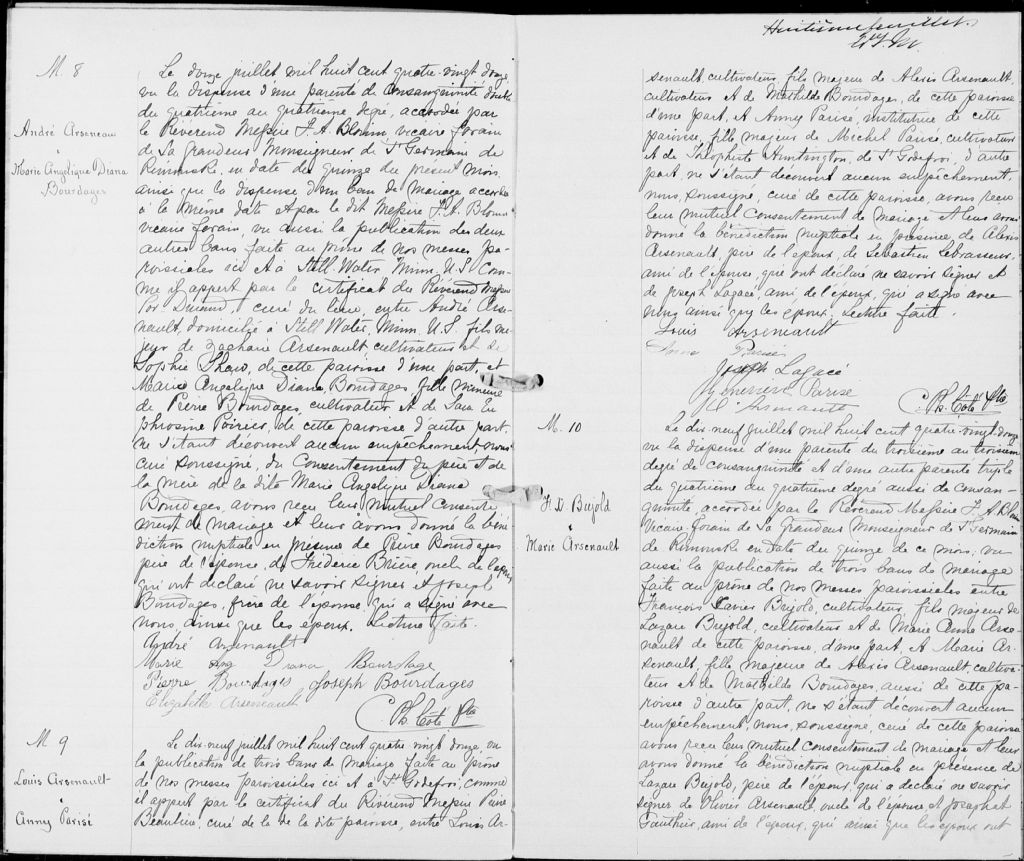 M. 8
André Arseneau
&
Marie Angelique Diana
Bourdages
Le douze juillet mil huit cent quatre-vingt douze,
vu la dispense d'une parenté de consanguinité double
du quatrième au quatrième degré, accordée par
le Révérend Messire F. A. Blouin vicaire forain
de Sa Grandeur Monseigneur de St Germain de
Rimouski, en date du quinze du présent mois
ainsi que la dispense d'un ban de mariage accordée
à la même date et par le dit Messire F. A. Blouin
vicaire forain, vu aussi la publication des deux
autres bans faite au prône de nos messes pa-
roissiales ici et à Still Water, Minn. U.S. com-
me il appert par le certificat du Révérend Messire
curé du lieu, entre André Arse-
nault, domicilié à Still Water, Minn. U.S. fils ma-
jeur de Zacharie Arsenault cultivateur et de
Sophie de cette paroisse d'une part, et
Marie Angelique Diana Bourdages fille mineure
de Pierre Bourdages, cultivateur et de Sara Eu-
phrosine Poirier, de cette paroisse d'autre part,
ne s'étant découvert aucun empêchement, nous
curé soussigné, du consentement du père et de
la mère de la dite Marie Angelique Diana
Bourdages, avons reçu leur mutuel consente-
ment de mariage et leur avons donné la béné-
diction nuptiale en présence de Pierre Bourdages
père de l'épouse, de Fréderic Brière oncle de l'époux
qui ont déclaré ne savoir signer et Joseph
Bourdages, frère de l'épouse qui a signé avec
nous, ainsi que les époux. Lecture faite.
André Arsenault
Marie Ang Diana Bourdage
Pierre Bourdages Joseph Bourdages
Elizabeth Arseneault
C. Ph. Côté Ptre
M 9
Louis Arsenault
&
Anny Parisé
Le dix-neuf juillet mil huit cent quatre vingt douze, vu
la publication de trois bans de mariage faite au prône
de nos messes paroissiales ici et à St Godefroi, comme
il appert par le certificat du Révérend Messire
curé de la dite paroisse, entre Louis Ar-
Huitième feuillet.
senault, cultivateur, fils majeur de Alexis Arsenault
cultivateur et de Mathilde Bourdages, de cette paroisse
d'une part, et Anny Parisé, institutrice de cette
paroisse, fille majeure de Michel Parisé, cultivateur
et de Huntington, de St Godefroi, d'autre
part, ne s'étant découvert aucun empêchement,
nous, soussigné, curé de cette paroisse, avons reçu
leur mutuel consentement de mariage et leur avons
donné la bénédiction nuptiale en présence de Alexis
Arsenault, père de l'époux, de Sébastien Lebrasseur,
ami de l'épouse, qui ont déclaré ne savoir signer et
de Joseph Lagacé, ami de l'époux, qui a signé avec
nous ainsi que les époux. Lecture faite.
Louis Arseneault
Anna Parisé
Joseph Lagacé
Parise
C. Ph. Côté Ptre
M. 10
F. X. Bujold
&
Marie Arsenault
Le dix-neuf juillet mil huit cent quatre-vingt douze
vu la dispense d'une parenté du troisième au troisième
degré de consanguinité et d'une autre parenté triple
du quatrième au quatrième degré aussi de consan-
guinité, accordée par le Révérend Messire F. A. Blouin
Vicaire forain de Sa Grandeur Monseigneur de St Germain
de Rimouski en date du quinze de ce mois, vu
aussi la publication de trois bans de mariage
faite au prône de nos messes paroissiales entre
François Xavier Bujold, cultivateur, fils majeur de
Lazare Bujold, cultivateur et de Marie Anne Arse-
nault de cette paroisse, d'une part, et Marie Ar-
senault, fille majeure de Alexis Arsenault, cultiva-
teur et de Mathilde Bourdages, aussi de cette pa-
roisse d'autre part, ne s'étant découvert aucun
empêchement, nous, soussigné, curé de cette paroisse
avons reçu leur mutuel consentement de mariage et leur
avons donné la bénédiction nuptiale en présence de
Lazare Bujold, père de l'époux, qui a déclaré ne savoir
signer de Olivier Arsenault oncle de l'épouse et Josephat
Gauthier, ami de l'époux, qui ainsi que les époux ont